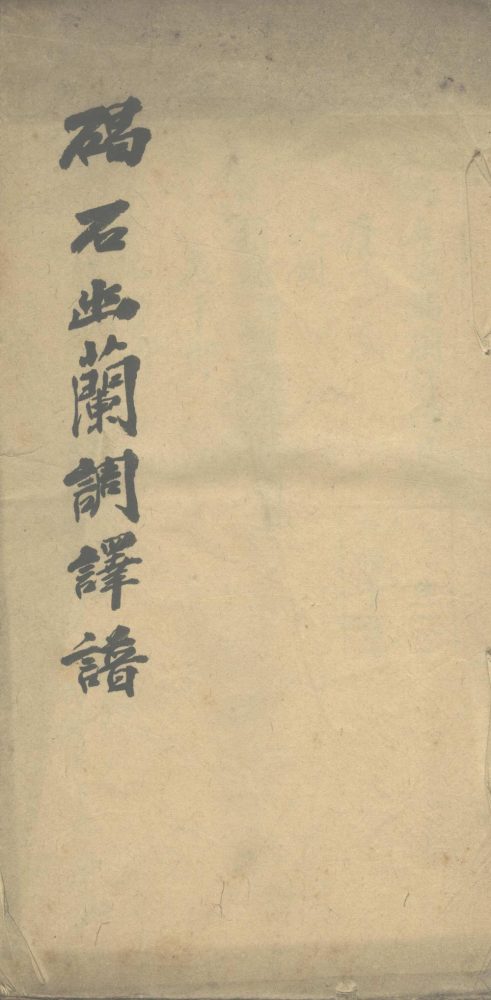 碣石幽蘭調譯譜